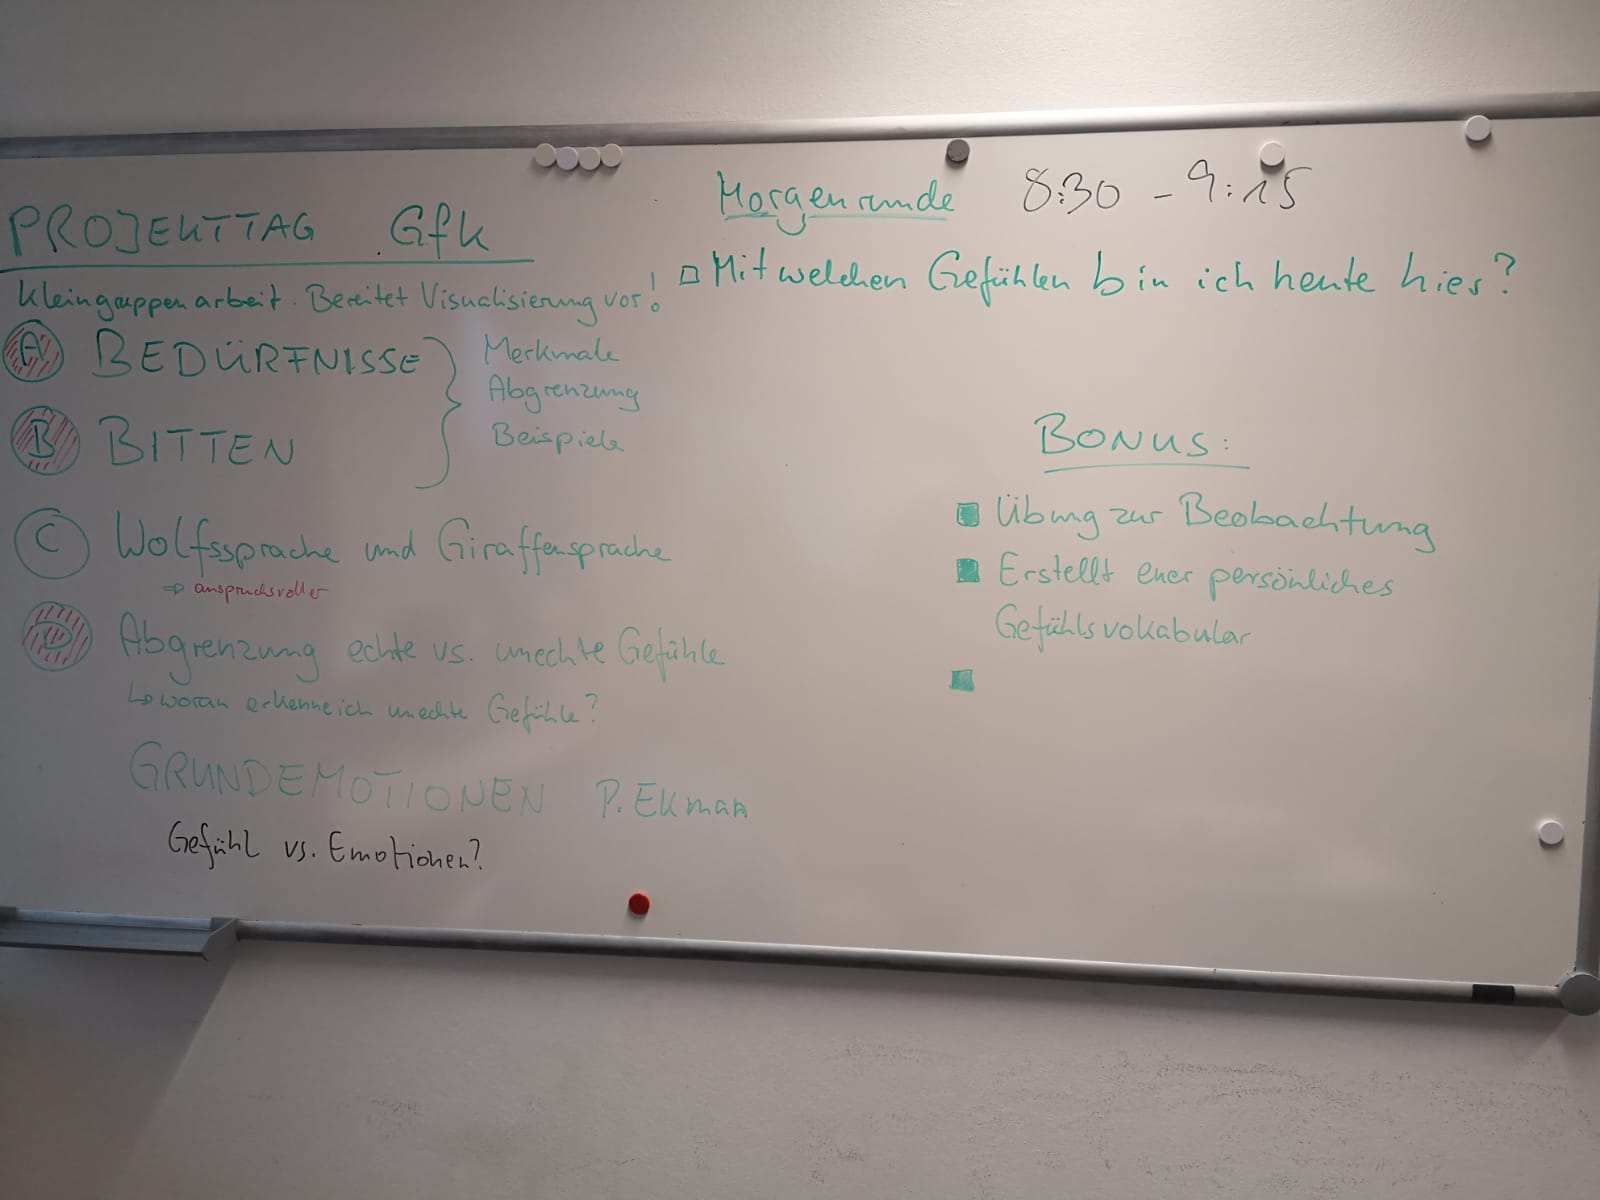 PROJEKTTAG GfK
Kleingruppenarbeit. Bereitet Visualisierung vor!
A BEDÜRFNISSE
B BITTEN
Merkmale
Abgrenzung
Beispiele
C Wolfssprache und Giraffensprache
⇒ anspruchsvoller
D Abgrenzung echte vs. unechte Gefühle
↳ woran erkenne ich unechte Gefühle?
GRUNDEMOTIONEN P. Ekman
Gefühl vs. Emotionen?
Morgenrunde 8:30 - 9:15
Mit welchen Gefühlen bin ich heute hier?
BONUS:
Übung zur Beobachtung
Erstellt euer persönliches
Gefühlsvokabular